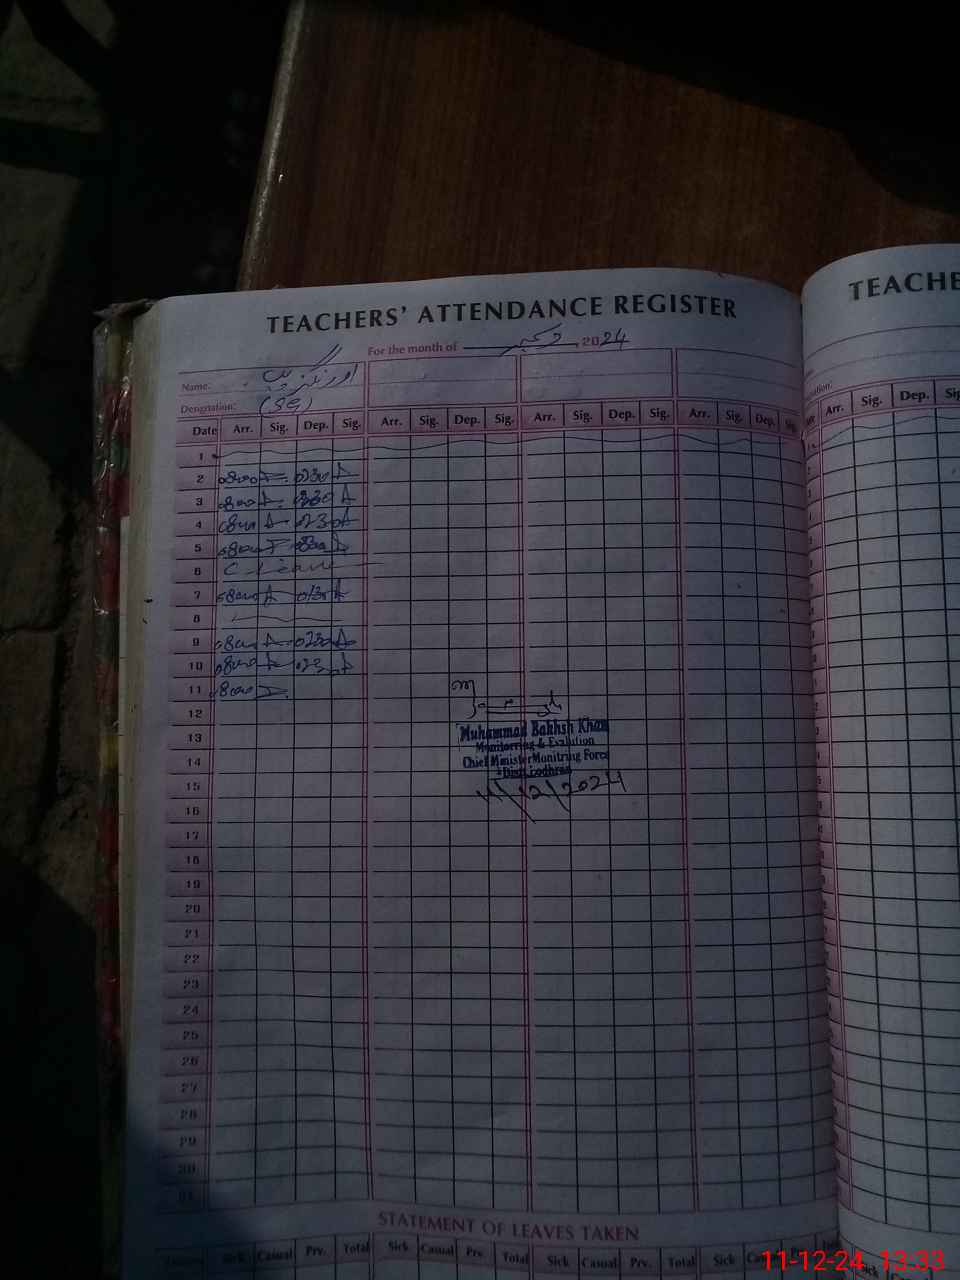 TEACHERS' ATTENDANCE REGISTER
For the month of دسمبر, 2024
Name: اورنگزیب
Designation: (SG)
Date Arr. Sig. Dep. Sig. Arr. Sig. Dep. Sig. Arr. Sig. Dep. Sig. Arr. Sig. Dep. Sig.
1
2 0800 0230
3 0800 0230
4 0800 0230
5 0800 0230
6 C-Leave
7 0800 0130
8
9 0800 0230
10 0800 023
11 0800
12
13
14
15
16
17
18
19
20
21
22
23
24
25
26
27
28
29
30
31
Muhammad Bakhsh Khan
Monitorring & Evalution
Chief Minister Monitring Force
Distt. Lodhran
11/12/2024
STATEMENT OF LEAVES TAKEN
Sick Casual Prv. Total Sick Casual Prv. Total Sick Casual Prv. Total Sick Casual
TEACHE
Arr. Sig. Dep. Sig
Sick
11-12-24 13:33